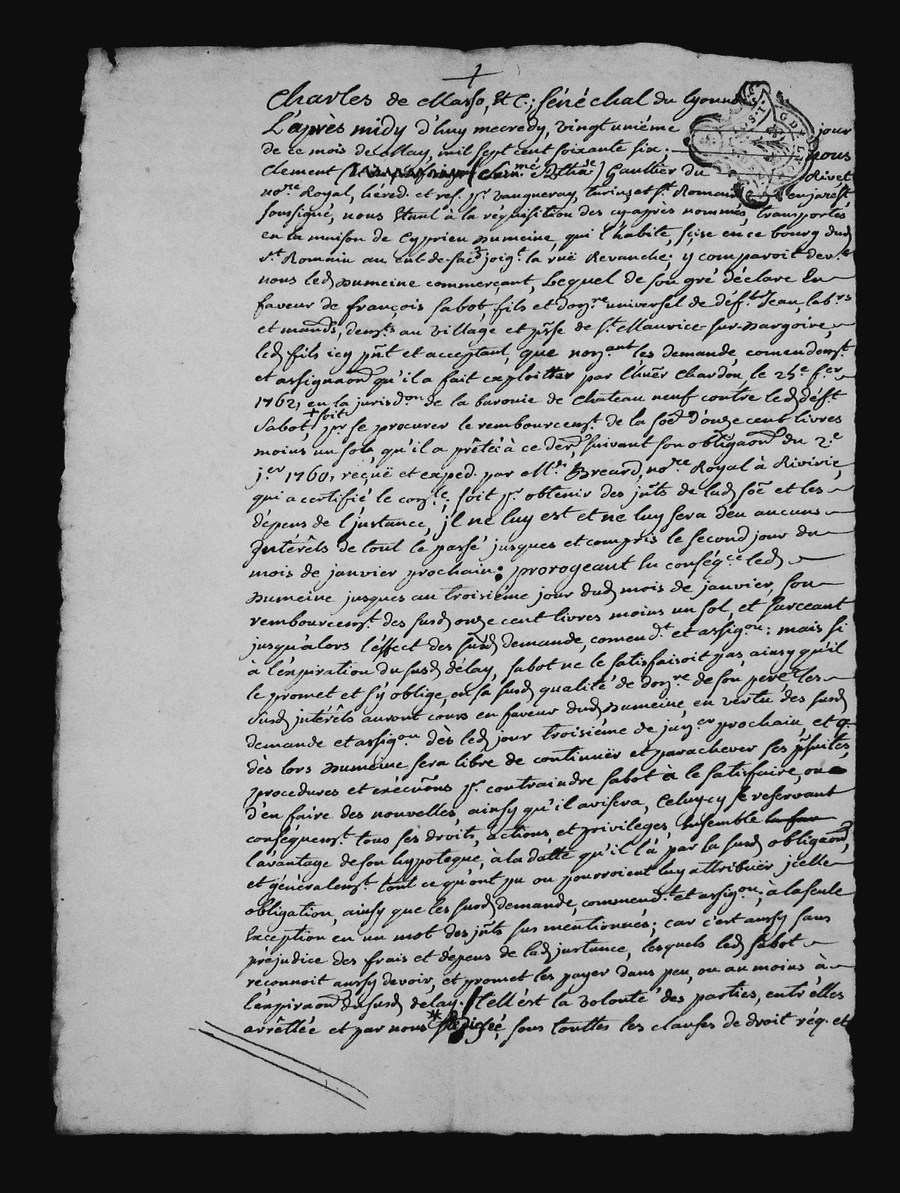 Charles de Masso, &C.; Sénéchal du Lyonn
L'après midy d'huy mecredy, vingt unième jour
de ce mois de May, mil sept cent soixante six. nous
Clement Gaultier du Rivet
no.re Royal, héréd. et res. p.r vaugneray, turins et S.t Romain en jarest
soussigné, nous étant à la réquisition des cy après nommés, transportés
en la maison de Cyprien Dumeine, qui l'habite, scise en ce bourg dud
S.t Romain au cul-de-sac joig.t la ruë Revanche; y comparoit dev.t
nous led Dumeine commerçant, Lequel de son gré déclare En
faveur de françois Sabot, fils et don.re universel de déf.t Jean, lab.r
et mand, dem.t au village et p.sse de S.t Maurice sur-dargoire,
led fils icy p.nt et acceptant, que non.ant les demande, comendem.t
et assignaon qu'il a fait exploitter par l'huier Chardon le 25.e f.er
1762, en la jurisd.on de la baronie de Chateau neuf contre led déf.t
Sabot, + soit
p.r se procurer le rembourcem.t de la soe d'onze cent livres
moins un sol, qu'il a prêtée à ce der.r, suivant son obligaon du 2.e
j.er 1760, reçuë et exped. par M.e Breard, no.re Royal à Riviric,
qui a certifié le con.le, soit p.r obtenir des ju.ts de lad soe et les
dépens de l'jnstance, jl ne luy est et ne luy sera deu aucuns
Intérêts de tout le passé jusques et compris le second jour du
mois de janvier prochain; prorogeant en conséq.ce led
Dumeine jusques au troisième jour dud mois de janvier, son
rembourcem.t des susd onze cent livres moins un sol, et surceant
jusqu'alors l'effect des susd demande, comend.t et assig.on; mais si
à l'expiration du susd délay, Sabot ne le satisfaisoit pas, ainsy qu'il
le promet et s'y oblige, en sa susd qualité de don.re de son pere, les
susd intérêts auront cours en faveur dud Dumeine en vertu des susd
demande et assig.on dès led jour troisième de janv.er prochain, et q
dès lors Dumeine sera libre de continuër et parachever ses p.rsuites,
procedures et exécuons p.r contraindre Sabot à le satisfaire, ou
d'en faire des nouvelles, ainsy qu'il avisera, Celuycy se reservant
conséquem.t tous ses droits, actions, et privileges, Ensemble
l'avantage de son hypoteque, à la datte qu'il l'a par la susd obligaon,
et généralem.t tout ce qu'ont pu ou pourroient luy attribuër jcelle
obligation, ainsy que les susd demande, commend.t et assig.on; à la seule
Exception en un mot des ju.ts sus mentionnés; car c'est aussy sans
prejudice des frais et dépens de lad jnstance, lesquels led Sabot
reconnoit aussy devoir, et promet les payer dans peu, ou au moins, à
l'expiraon du susd delay. Tell'est la volonté des parties, entr'elles
arrêttée et par nous * rédigée, sous touttes les clauses de droit réq. et